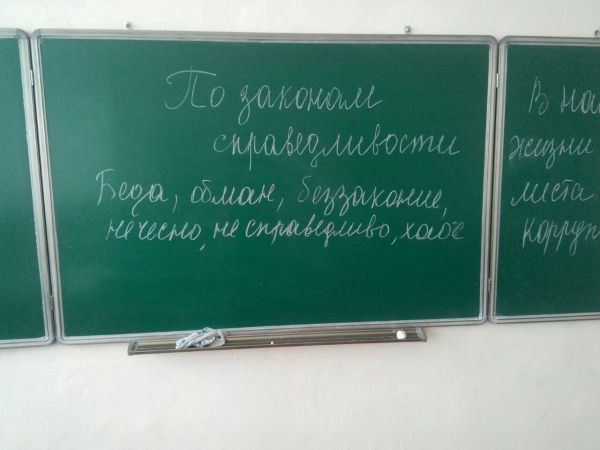 По законам
справедливости
Беда, обман, беззаконие,
не чесно, не справедливо, хаос
В на
жизни
места
корруп